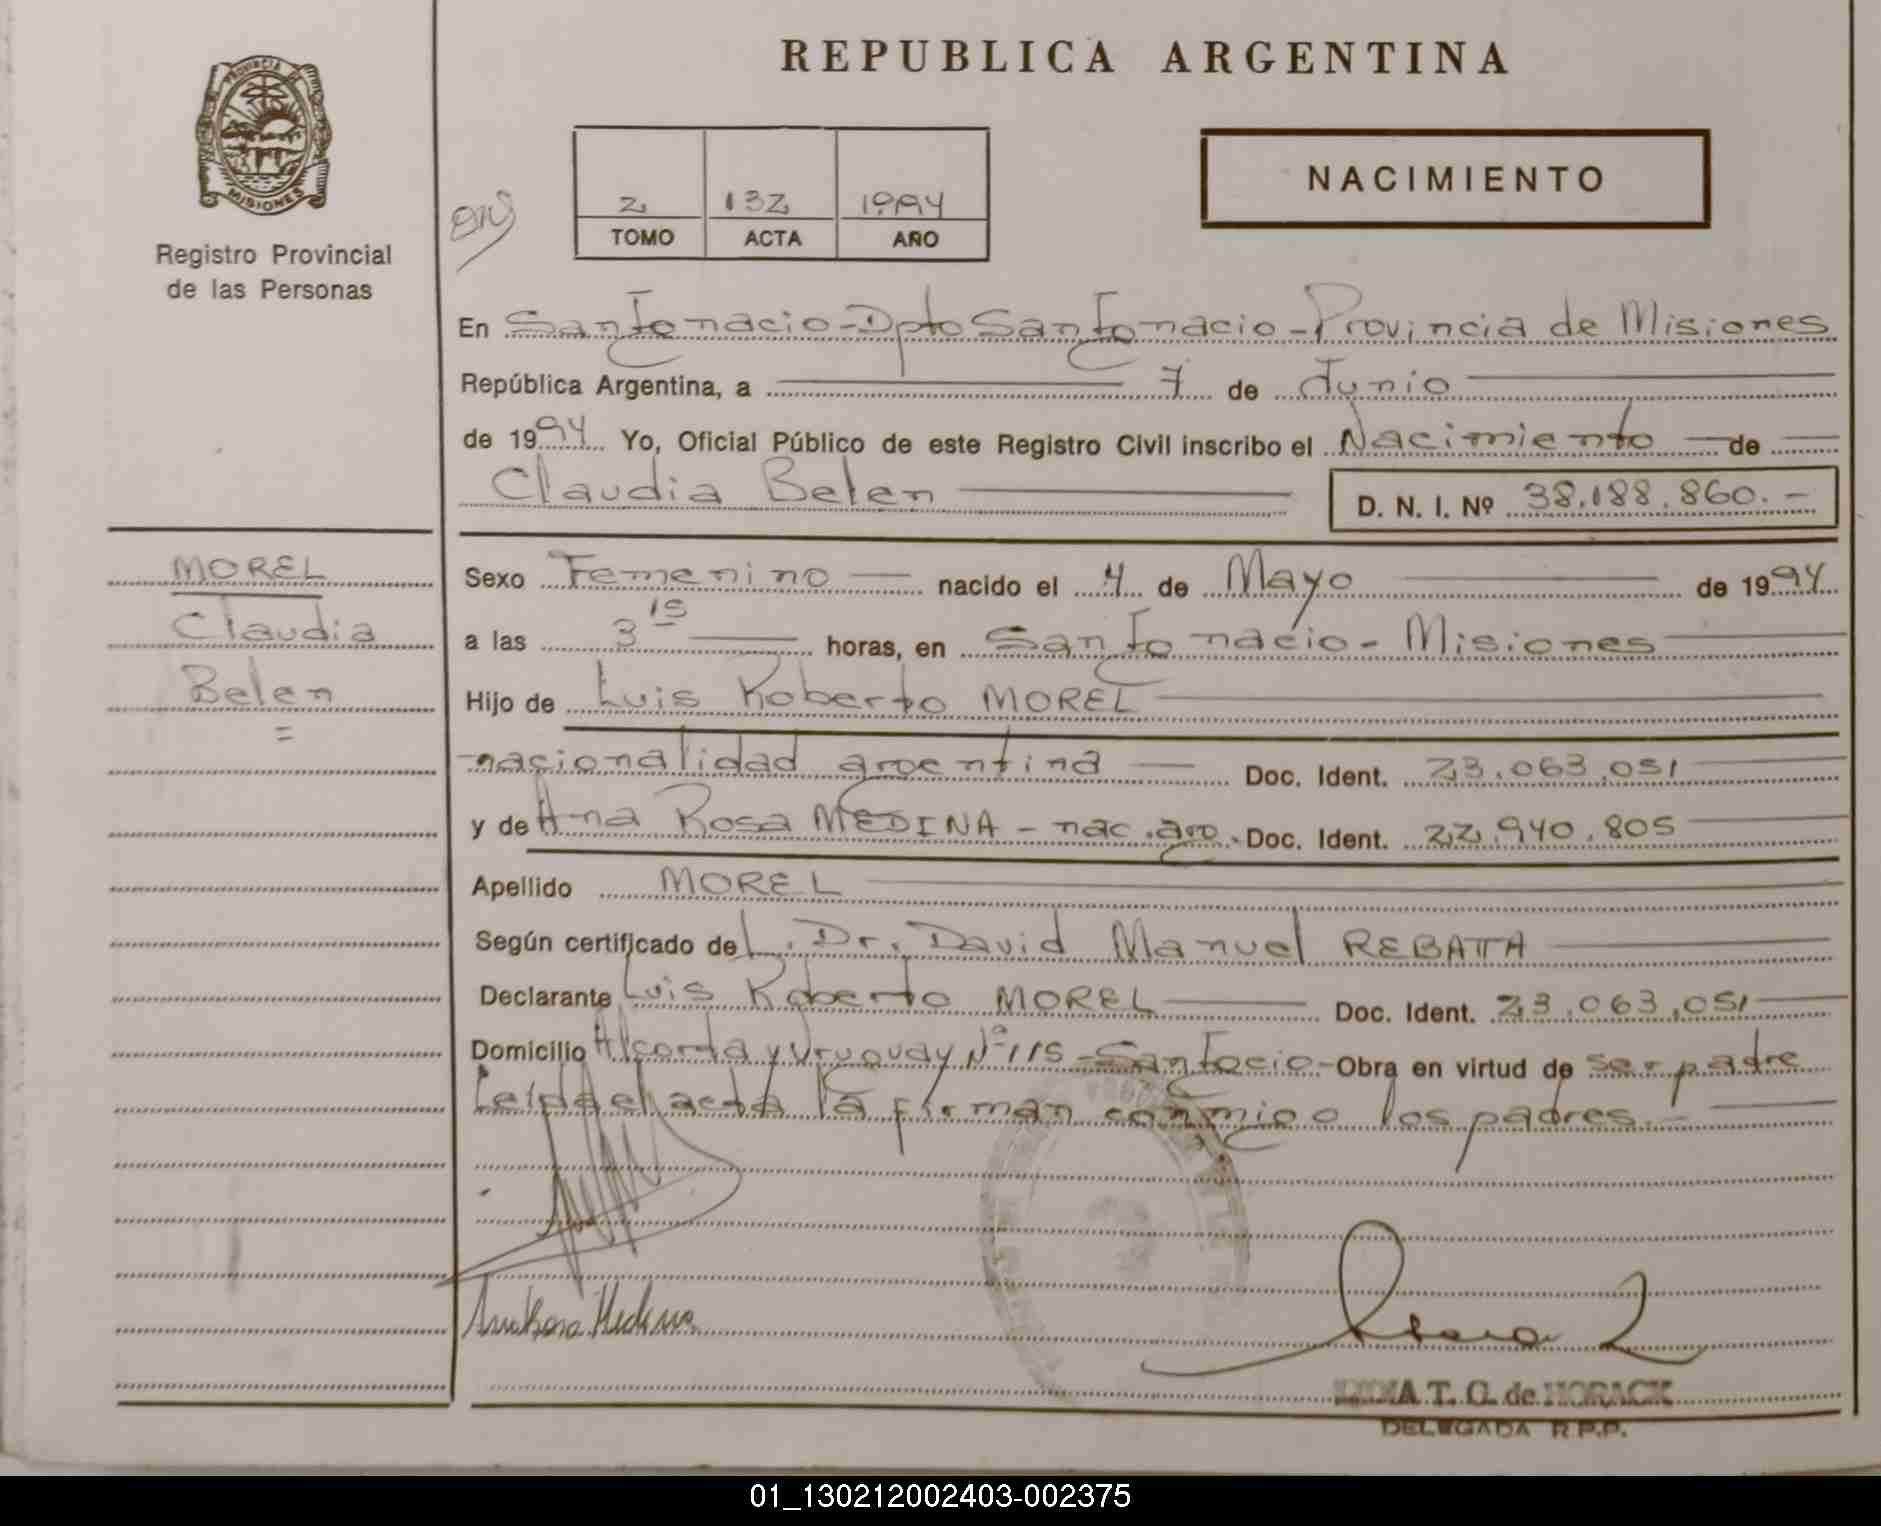 REPUBLICA ARGENTINA
PROVINCIA DE
MISIONES
Registro Provincial
de las Personas
2 132 1994
TOMO ACTA AÑO
NACIMIENTO
En San Ignacio - Dpto San Ignacio - Provincia de Misiones
República Argentina, a 7 de Junio
de 1994 Yo, Oficial Público de este Registro Civil inscribo el Nacimiento de
Claudia Belen D. N. I. Nº 38.188.860.-
MOREL
Claudia
Belen
=
Sexo Femenino nacido el 4 de Mayo de 1994
a las 3 15 horas, en San Ignacio - Misiones
Hijo de Luis Roberto MOREL
nacionalidad argentina Doc. Ident. 23.063.051
y de Ana Rosa MEDINA - nac. arg. Doc. Ident. 22.940.805
Apellido MOREL
Según certificado del Dr. David Manuel REBATTA
Declarante Luis Roberto MOREL Doc. Ident. 23.063.051
Domicilio Alcorta y Uruguay Nº 115 - San Igcio - Obra en virtud de ser padre
Leída el acta la firman conmigo los padres.-
Ana Rosa Medina
T. G. de HORACK
DELEGADA R.P.P.
01_130212002403-002375